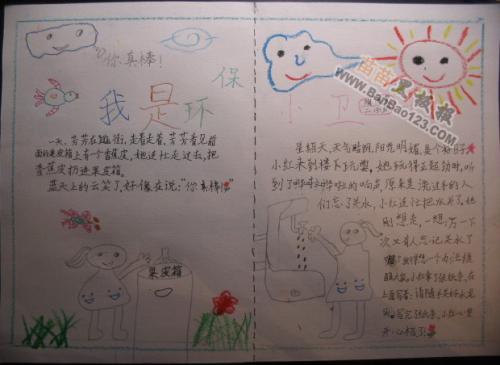 “你真棒！
我是环保
小卫
苗苗黑板报
www.BanBao123.com
一天，芳芳在逛街，走着走着，芳芳看见前
面的果皮箱上有一个香蕉皮，她连忙走过去，把
香蕉皮扔进果皮箱。
蓝天上的云笑了，好像在说：“你真棒！”
果皮箱
星期天，天气晴朗，阳光明媚，是个好日子
小红来到楼下玩耍，她玩得正起劲时，听
到了哗哗哗的响声，原来是洗过手的人
们忘了关水，小红连忙把水关了。她
刚想走，一想：万一下
次又有人忘记关水了
在上面写着：请随手关好水龙
头，写完张纸条，小红心里
开心极了！